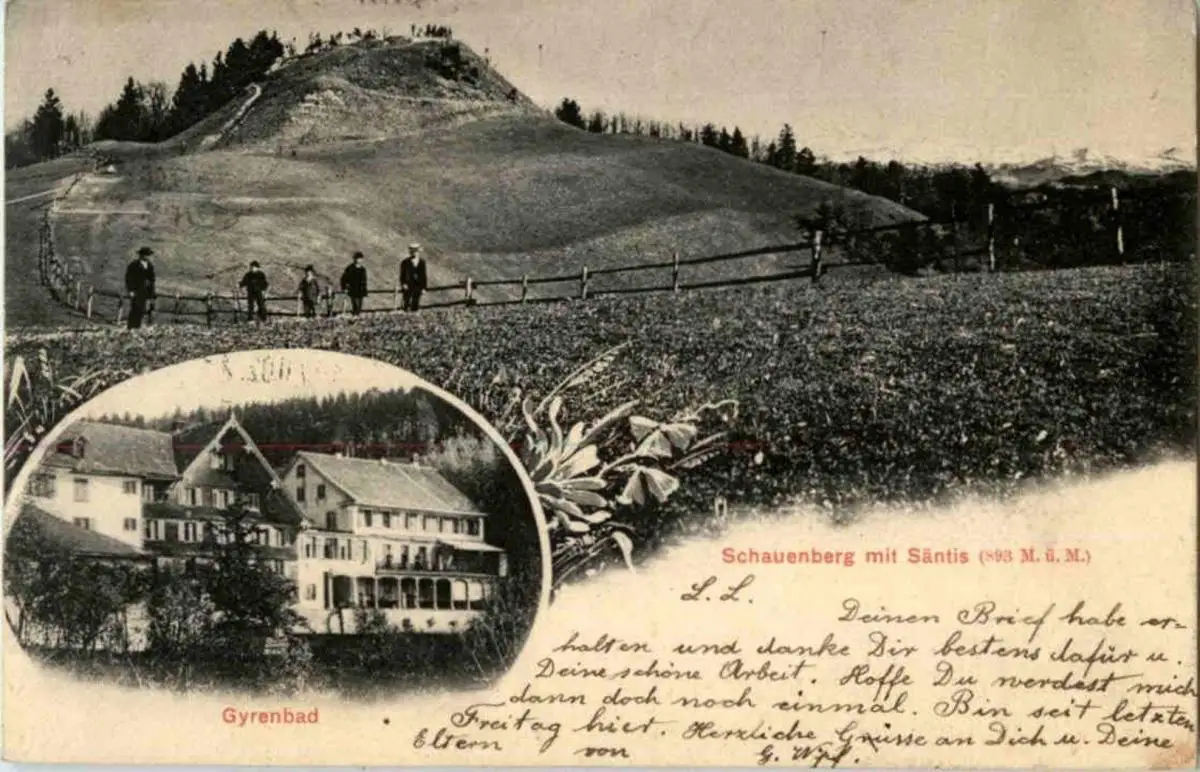 Schauenberg mit Säntis (893 M. ü. M.)
L. L.
Deinen Brief habe er-
halten und danke Dir bestens dafür u.
Deine schöne Arbeit. Hoffe Du werdest mich
dann doch noch einmal. Bin seit letzten
Freitag hier. Herzliche Grüsse an Dich u. Deine
Eltern von G.
Gyrenbad